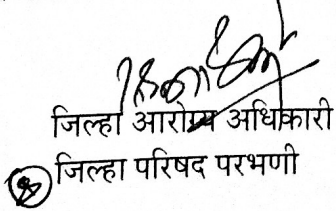 जिल्हा आरोग्य अधिकारी
जिल्हा परिषद परभणी